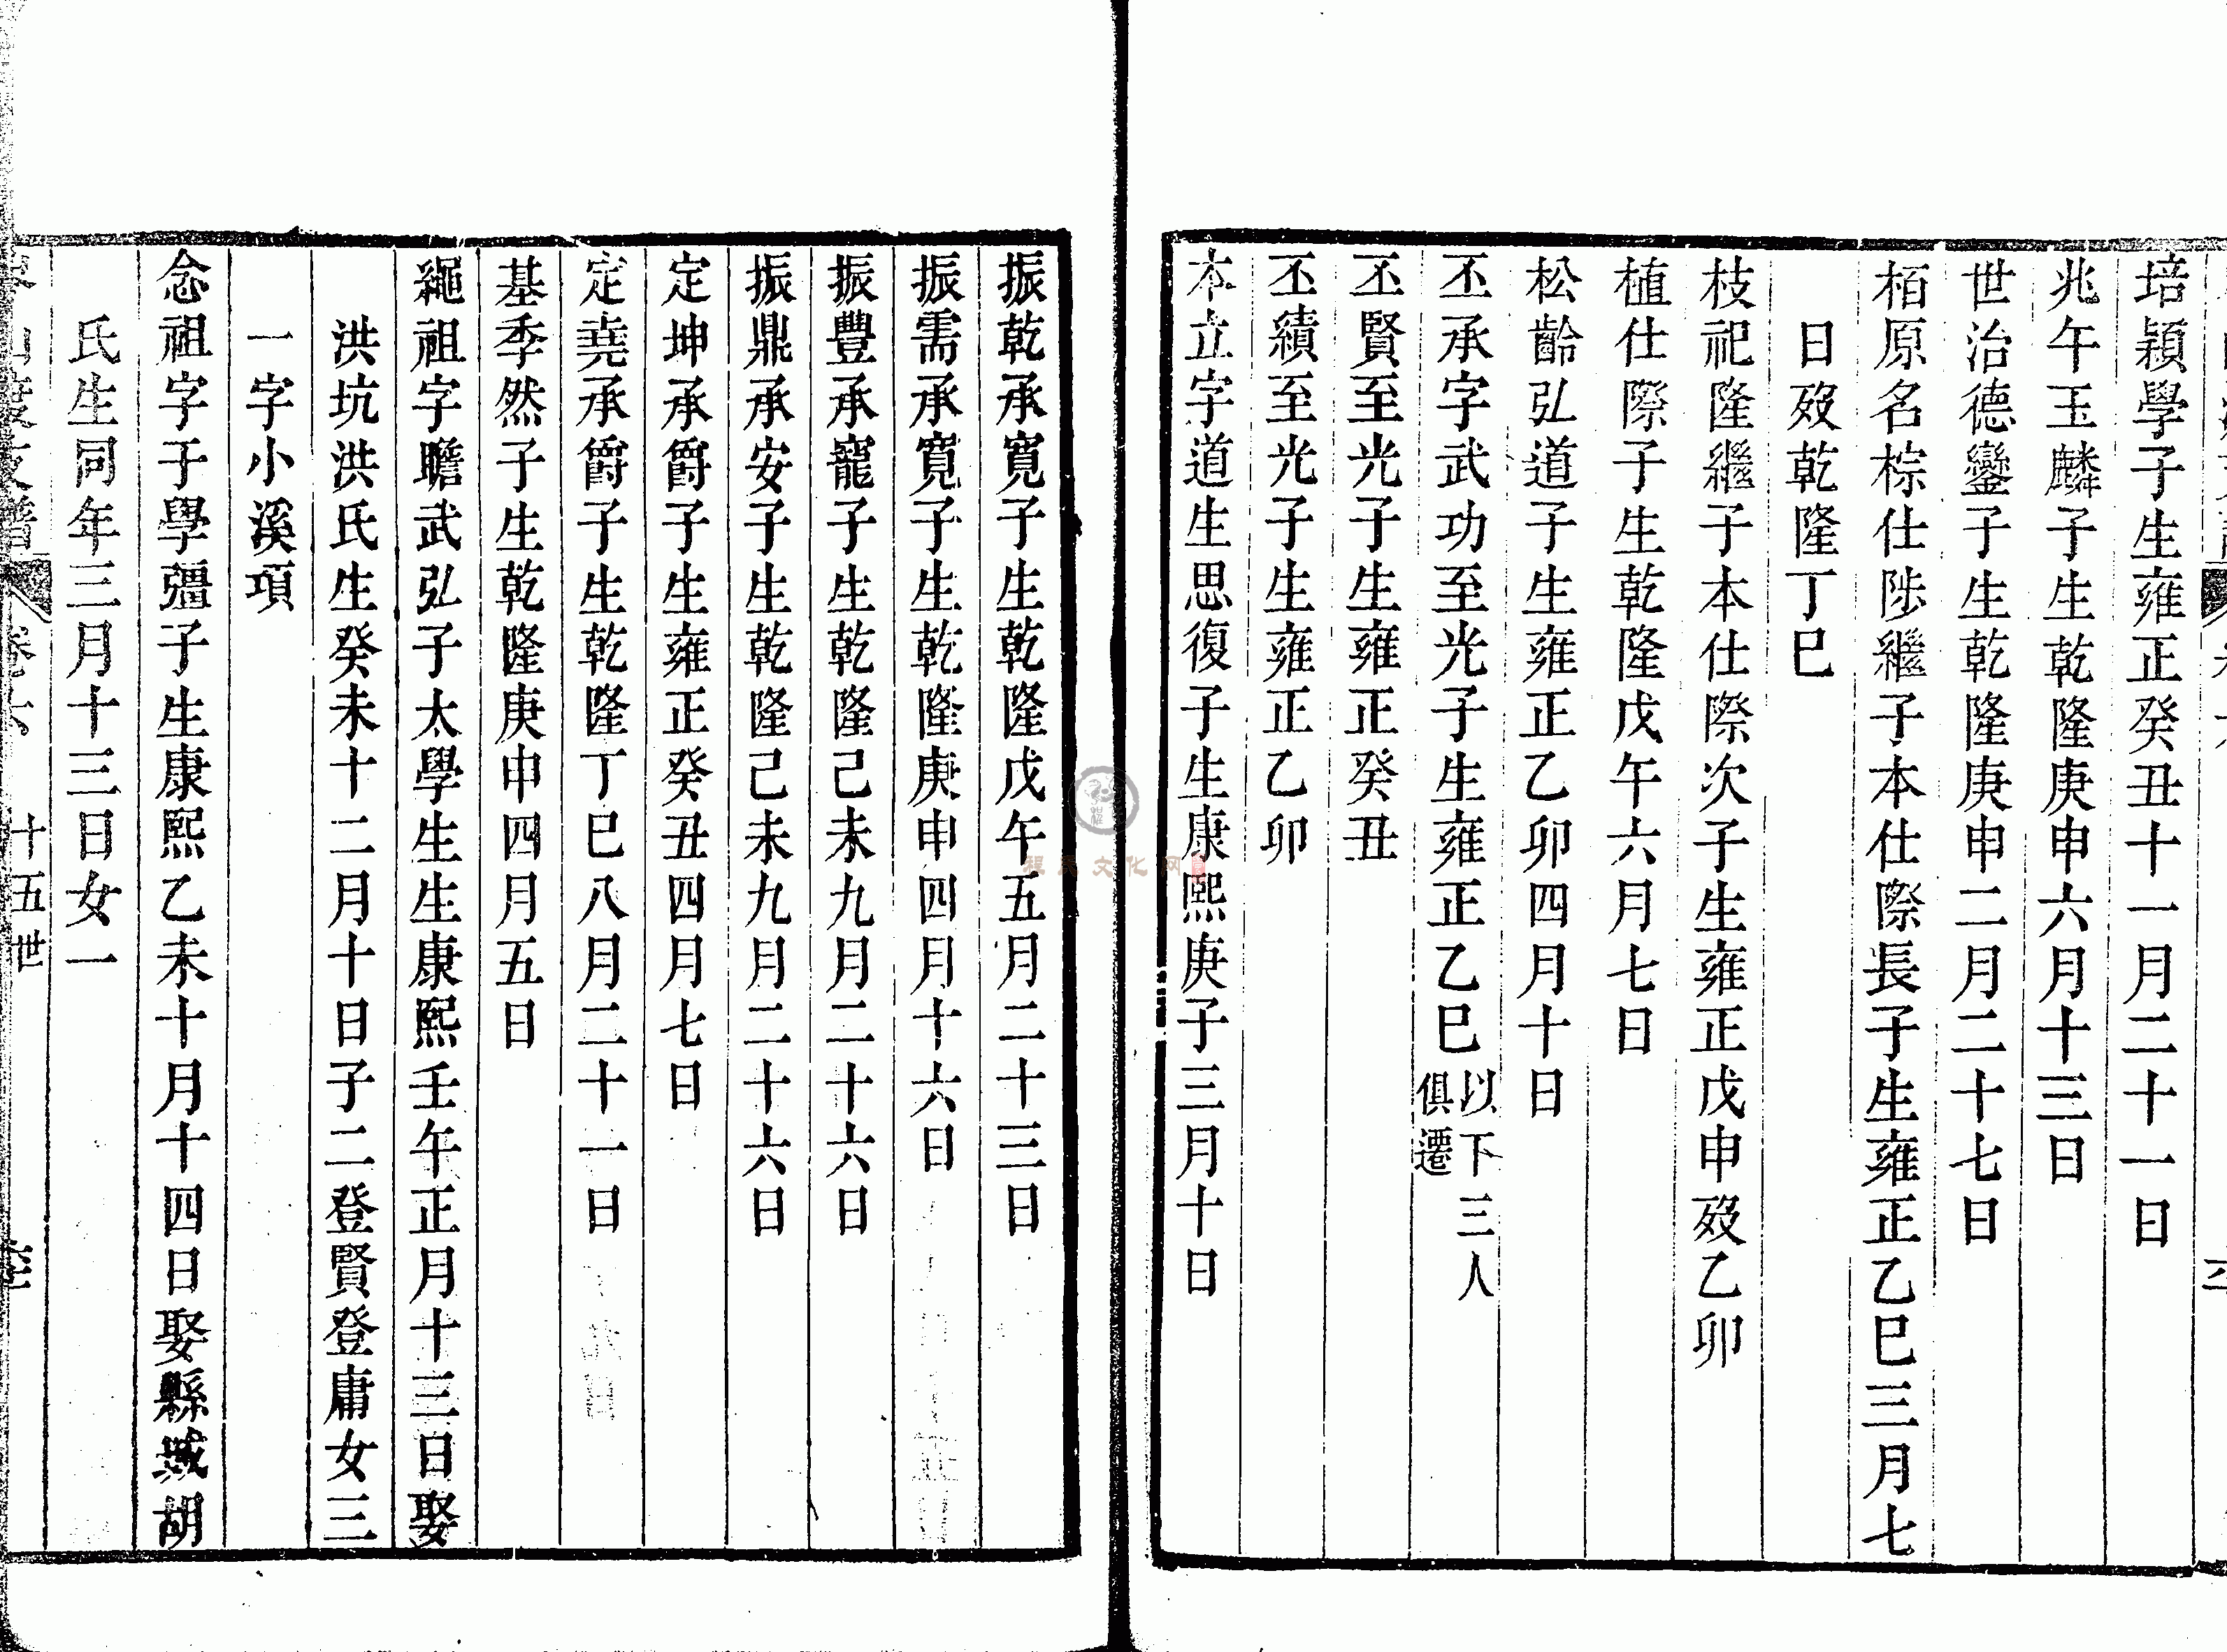 培穎學子生雍正癸丑十一月二十一日
兆午玉麟子生乾隆庚申六月十三日
世治德鑾子生乾隆庚申二月二十七日
栢原名棕仕陟繼子本仕際長子生雍正乙巳三月七
日歿乾隆丁巳
枝祀隆繼子本仕際次子生雍正戊申歿乙卯
植仕際子生乾隆戊午六月七日
松齡弘道子生雍正乙卯四月十日
丕承字武功至光子生雍正乙巳以下三人
俱遷
丕賢至光子生雍正癸丑
丕績至光子生雍正乙卯
本立字道生思復子生康熙庚子三月十日
振乾承寬子生乾隆戊午五月二十三日
振需承寬子生乾隆庚申四月十六日
振豐承寵子生乾隆己未九月二十六日
振鼎承安子生乾隆己未九月二十六日
定坤承爵子生雍正癸丑四月七日
定堯承爵子生乾隆丁巳八月二十一日
基季然子生乾隆庚申四月五日
繩祖字瞻武弘子太學生生康熙壬午正月十三日娶
洪坑洪氏生癸未十二月十日子二登賢登庸女三
一字小溪項
念祖字子學彊子生康熙乙未十月十四日娶縣城胡
氏生同年三月十三日女一
山渡支譜 卷六 十五世
程氏文化网